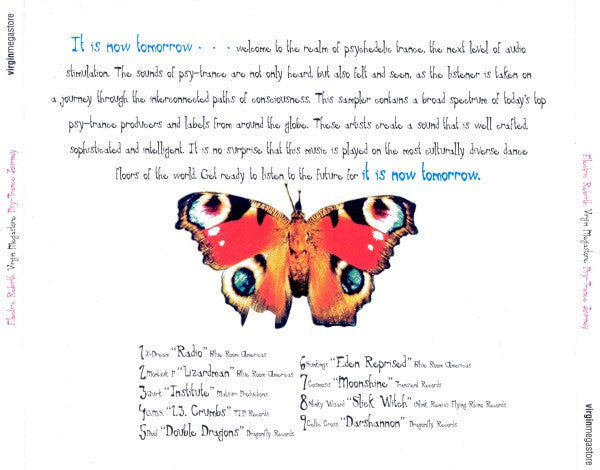 It is now tomorrow . . . welcome to the realm of psychedelic trance, the next level of audio
stimulation. The sounds of psy-trance are not only heard, but also felt and seen, as the listener is taken on
a journey through the interconnected paths of consciousness. This sampler contains a broad spectrum of today's top
psy-trance producers and labels from around the globe. These artists create a sound that is well crafted,
sophisticated and intelligent. It is no surprise that this music is played on the most culturally diverse dance
floors of the world. Get ready to listen to the future for it is now tomorrow.
1 X-Dream "Radio" Blue Room Americas
2 "Lizardman" Blue Room Americas
3 "Institute" Matsuri Productions
4 "1.3. Crumbs" TIP Records
5 "Double Dragons" Dragonfly Records
6 "Eden Reprised" Blue Room Americas
7 Cosmosis "Moonshine" Transient Records
8 Slinky Wizard "Slick Witch" Flying Rhino Records
9 Celtic Cross "Darshannon" Dragonfly Records
virginmegastore
Electric Rebirth Virgin Megastore Psy-Trance Journey
Electric Rebirth Virgin Megastore Psy-Trance Journey
virginmegastore